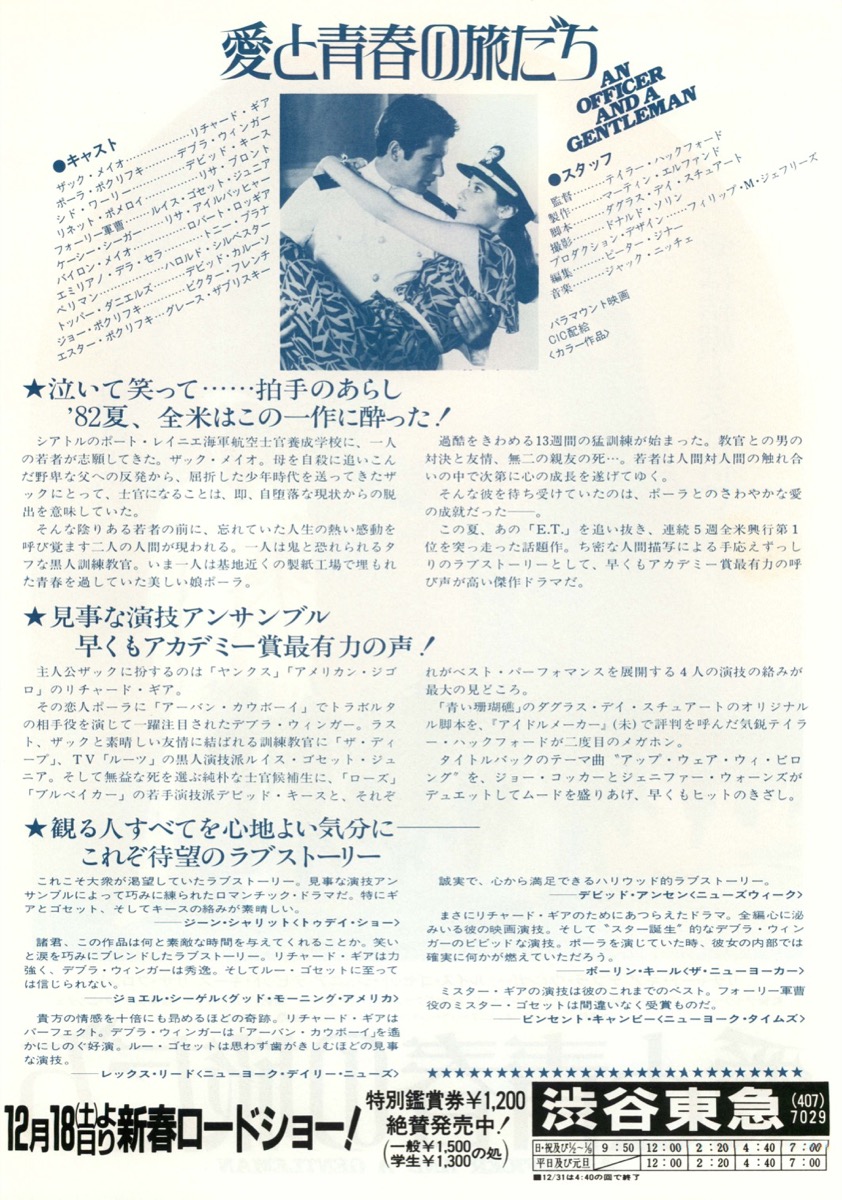 愛と青春の旅だち
AN
OFFICER
AND A
GENTLEMAN
●キャスト
ザック・メイオ……………リチャード・ギア
ポーラ・ポクリフキ……デブラ・ウィンガー
シド・ワーリー……………デビッド・キース
リネット・ポメロイ………リサ・ブロント
フォーリー軍曹……ルイス・ゴセット・ジュニア
ケーシー・シーガー……リサ・アイルバッヒャー
バイロン・メイオ……………ロバート・ロッギア
エミリアノ・デラ・セラ………トニー・プラナ
ペリマン……………ハロルド・シルベスター
トッパー・ダニエルズ……デビッド・カルーソ
ジョー・ポクリフキ……ビクター・フレンチ
エスター・ポクリフキ…グレース・ザブリスキー
●スタッフ
監督………テイラー・ハックフォード
製作………マーティン・エルファンド
脚本……ダグラス・デイ・スチュアート
撮影………ドナルド・ソリン
プロダクション・デザイン……フィリップ・M・ジェフリーズ
編集………ピーター・ジナー
音楽………ジャック・ニッチェ
パラマウント映画
CIC配給
〈カラー作品〉
★泣いて笑って……拍手のあらし
'82夏、全米はこの一作に酔った！
シアトルのポート・レイニエ海軍航空士官養成学校に、一人
の若者が志願してきた。ザック・メイオ。母を自殺に追いこん
だ野卑な父への反発から、屈折した少年時代を送ってきたザ
ックにとって、士官になることは、即、自堕落な現状からの脱
出を意味していた。
そんな陰りある若者の前に、忘れていた人生の熱い感動を
呼び覚ます二人の人間が現われる。一人は鬼と恐れられるタ
フな黒人訓練教官。いま一人は基地近くの製紙工場で埋もれ
た青春を過していた美しい娘ポーラ。
過酷をきわめる13週間の猛訓練が始まった。教官との男の
対決と友情、無二の親友の死…。若者は人間対人間の触れ合
いの中で次第に心の成長を遂げてゆく。
そんな彼を待ち受けていたのは、ポーラとのさわやかな愛
の成就だった──。
この夏、あの「E.T.」を追い抜き、連続5週全米興行第1
位を突っ走った話題作。ち密な人間描写による手応えずっし
りのラブストーリーとして、早くもアカデミー賞最有力の呼
び声が高い傑作ドラマだ。
★見事な演技アンサンブル
早くもアカデミー賞最有力の声！
主人公ザックに扮するのは「ヤンクス」「アメリカン・ジゴ
ロ」のリチャード・ギア。
その恋人ポーラに「アーバン・カウボーイ」でトラボルタ
の相手役を演じて一躍注目されたデブラ・ウィンガー。ラス
ト、ザックと素晴しい友情に結ばれる訓練教官に「ザ・ディ
ープ」、TV「ルーツ」の黒人演技派ルイス・ゴセット・ジュ
ニア。そして無益な死を選ぶ純朴な士官候補生に、「ローズ」
「ブルベイカー」の若手演技派デビッド・キースと、それぞ
れがベスト・パーフォマンスを展開する4人の演技の絡みが
最大の見どころ。
「青い珊瑚礁」のダグラス・デイ・スチュアートのオリジナル
ル脚本を、『アイドルメーカー』(未)で評判を呼んだ気鋭テイラ
ー・ハックフォードが二度目のメガホン。
タイトルバックのテーマ曲〝アップ・ウェア・ウィ・ビロ
ング〟を、ジョー・コッカーとジェニファー・ウォーンズが
デュエットしてムードを盛りあげ、早くもヒットのきざし。
★観る人すべてを心地よい気分に────
これぞ待望のラブストーリー
これこそ大衆が渇望していたラブストーリー。見事な演技アン
サンブルによって巧みに練られたロマンチック・ドラマだ。特にギ
アとゴセット、そしてキースの絡みが素晴しい。
──ジーン・シャリット〈トゥデイ・ショー〉
諸君、この作品は何と素敵な時間を与えてくれることか。笑い
と涙を巧みにブレンドしたラブストーリー。リチャード・ギアは力
強く、デブラ・ウィンガーは秀逸。そしてルー・ゴセットに至って
は信じられない。
──ジョエル・シーゲル〈グッド・モーニング・アメリカ〉
貴方の情感を十倍にも昂めるほどの奇跡。リチャード・ギアは
パーフェクト。デブラ・ウィンガーは「アーバン・カウボーイ」を遙
かにしのぐ好演。ルー・ゴセットは思わず歯がきしむほどの見事
な演技。
──レックス・リード〈ニューヨーク・デイリー・ニューズ〉
誠実で、心から満足できるハリウッド的ラブストーリー。
──デビッド・アンセン〈ニューズウィーク〉
まさにリチャード・ギアのためにあつらえたドラマ。全編心に泌
みいる彼の映画演技。そして〝スター誕生〟的なデブラ・ウィン
ガーのビビッドな演技。ポーラを演じていた時、彼女の内部では
確実に何かが燃えていただろう。
──ポーリン・キール〈ザ・ニューヨーカー〉
ミスター・ギアの演技は彼のこれまでのベスト。フォーリー軍曹
役のミスター・ゴセットは間違いなく受賞ものだ。
──ビンセント・キャンビー〈ニューヨーク・タイムズ〉
★★★★★★★★★★★★★★★★★★★★★★★★★★★★★
12月18日(土)より新春ロードショー！
特別鑑賞券￥1,200
絶賛発売中！
(一般￥1,500 学生￥1,300の処)
渋谷東急 (407)7029
日・祝及び1/2～1/9 9:50 12:00 2:20 4:40 7:00
平日及び元旦 12:00 2:20 4:40 7:00
■12/31は4:40の回で終了